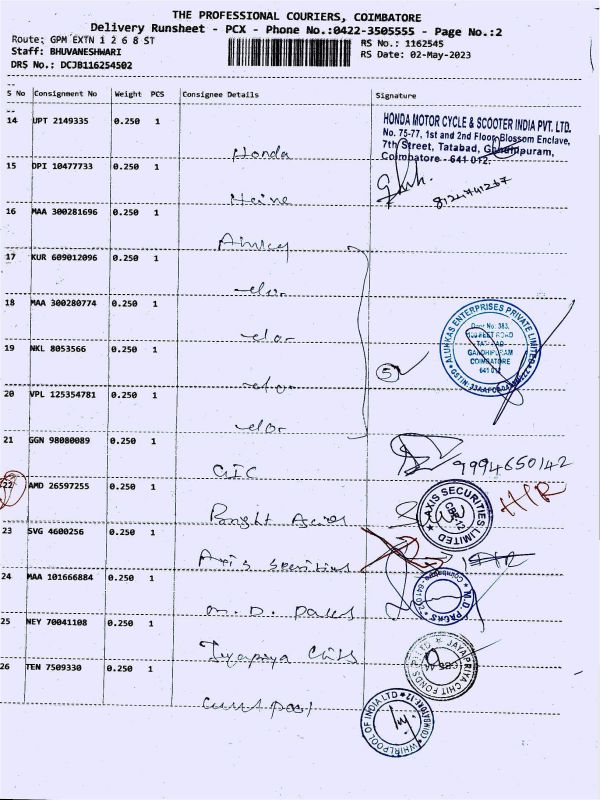 THE PROFESSIONAL COURIERS, COIMBATORE
Delivery Runsheet - PCX - Phone No.:0422-3505555 - Page No.:2
Route: GPM EXTN 1 2 6 8 ST
RS No.: 1162545
Staff: BHUVANESHWARI
RS Date: 02-May-2023
DRS No.: DCJB116254502
S No Consignment No Weight PCS Consignee Details Signature
14 UPT 2149335 0.250 1
Honda
HONDA MOTOR CYCLE & SCOOTER INDIA PVT. LTD.
No. 75-77, 1st and 2nd Floor, Blossom Enclave,
7th Street, Tatabad, Gandhipuram,
Coimbatore - 641 012.
15 DPI 10477733 0.250 1
16 MAA 300281696 0.250 1
17 KUR 609012096 0.250 1
18 MAA 300280774 0.250 1
19 NKL 8053566 0.250 1
5
ALUKKAS ENTERPRISES PRIVATE LIMITED
Door No. 383,
100 FEET ROAD
TATABAD
GANDHIPURAM
COIMBATORE
641 012
20 VPL 125354781 0.250 1
21 GGN 98080089 0.250 1
GIC
9994650142
22 AMD 26597255 0.250 1
AXIS SECURITIES LIMITED
23 SVG 4600256 0.250 1
Axis Securities
24 MAA 101666884 0.250 1
N.D. PACKS
25 NEY 70041108 0.250 1
Jayapriya Chits
JAYAPRIYA CHIT FONDS
26 TEN 7509330 0.250 1
WHIRLPOOL OF INDIA LTD